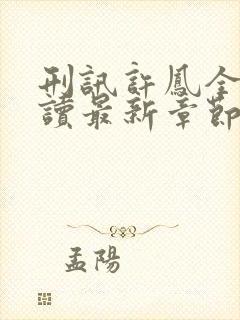 刑訊許鳳全
讀最新章節
孟陽